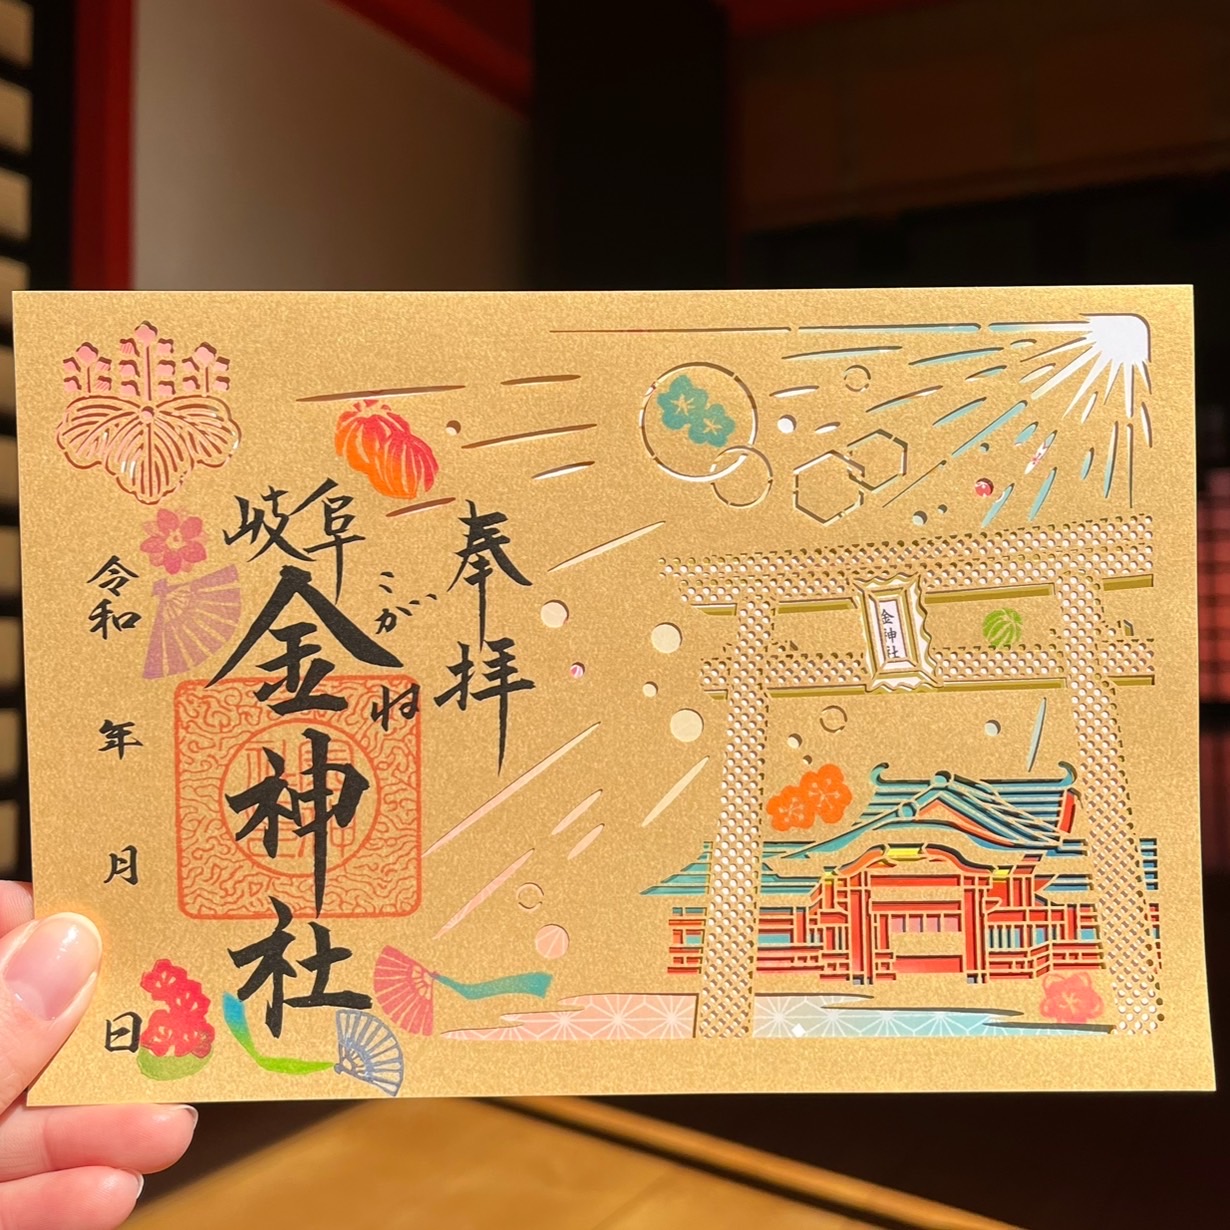 奉拝
岐阜
金神社
こがね
令和 年 月 日
金神社